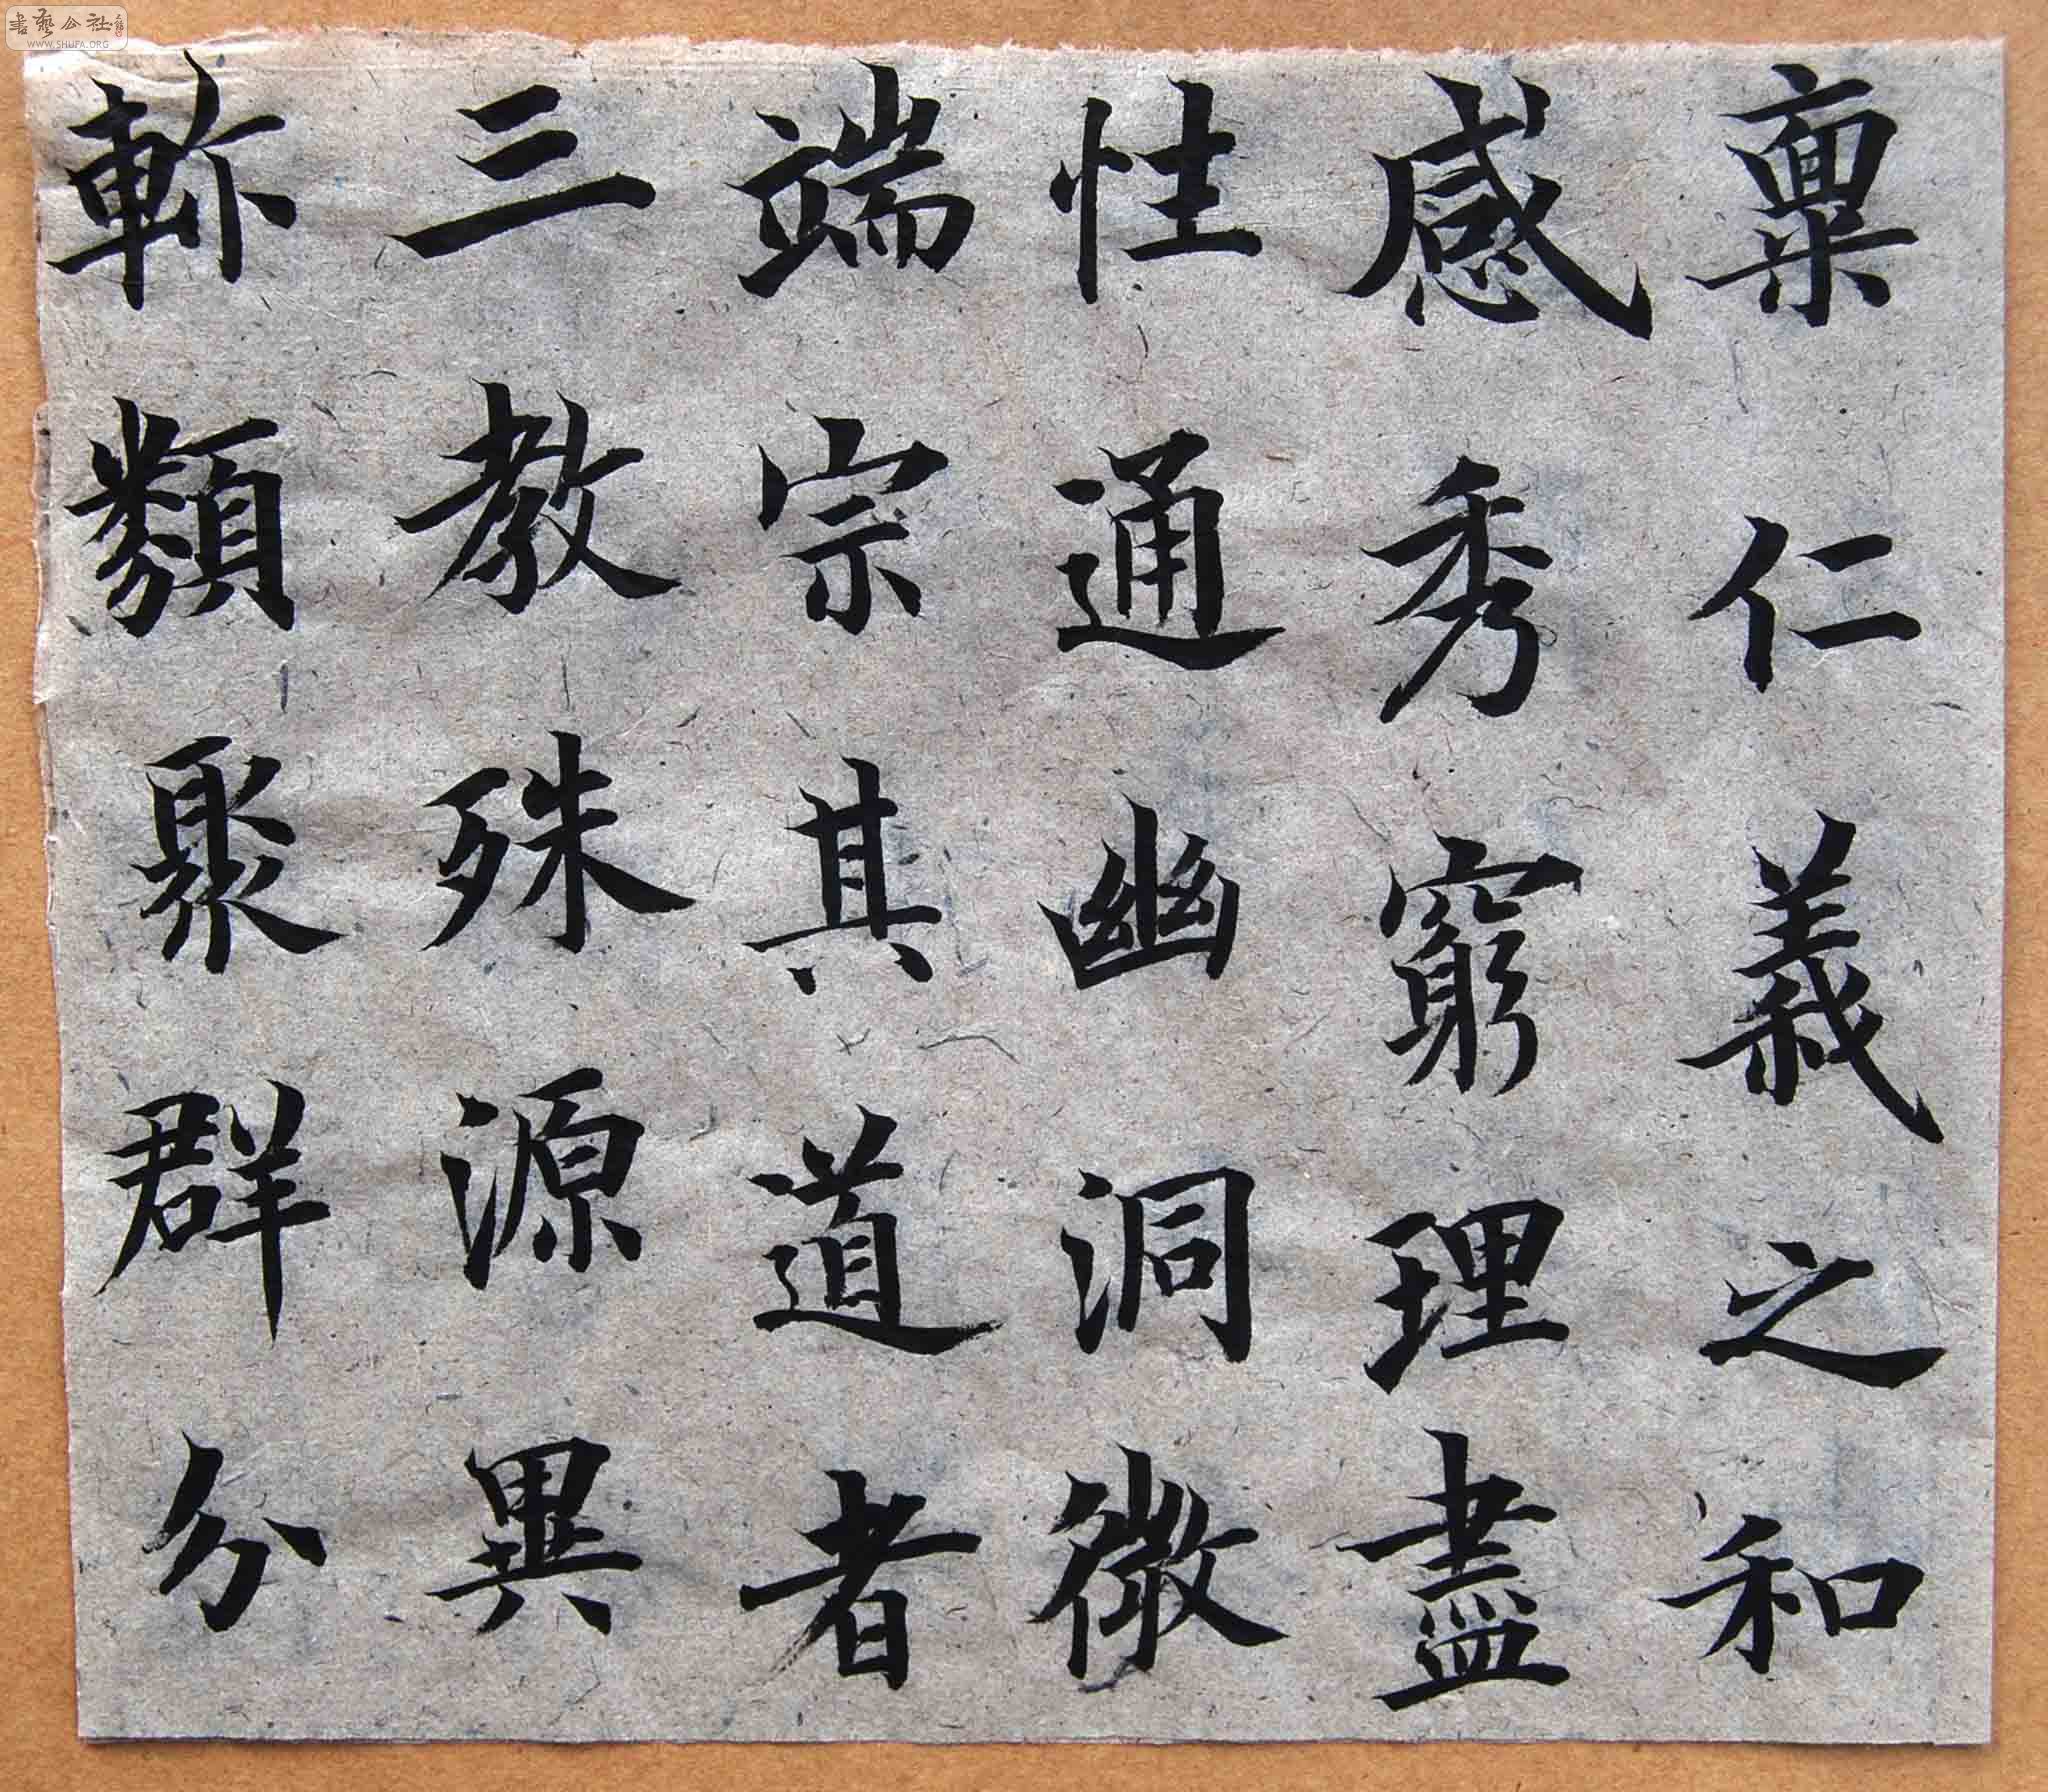 書藝公社
WWW.SHUFA.ORG
稟仁義之和
感秀窮理盡
性通幽洞微
端宗其道者
三教殊源異
軫類聚群分